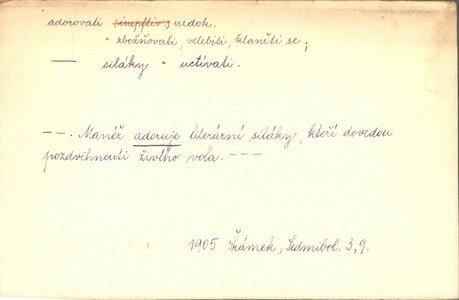 adorovati nedok.
= zbožňovati, velebiti, klaněti se;
— siláky = uctívati.
— —. Manéž adoruje literární siláky, kteří dovedou
pozdvihnouti živého vola. — — —
1905 Šrámek, Sedmibol. 3, 9.